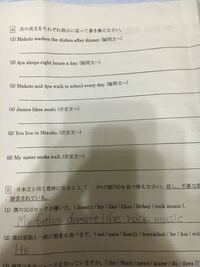 4 次の英文をそれぞれ指示に従って書き換えなさい。
(1) Makoto washes the dishes after dinner. (疑問文へ)
(2) Aya sleeps eight hours a day. (疑問文へ)
(3) Makoto and Aya walk to school every day. (疑問文へ)
(4) James likes sushi. (否定文へ)
(5) You live in Mizuho. (否定文へ)
(6) My sister cooks well. (否定文へ)
5 日本文と同じ意味になるよう、( )内の語(句)を並べ替えなさい。但し、不要な
が含まれている。
(1) 僕の父はロックが嫌いだ。( doesn't / my / like / likes / father / rock music ).
My father doesn't like rock music
(2) 彼は家族と一緒に朝食を食べます。( eat / eats / family / breakfast / his / wit
He